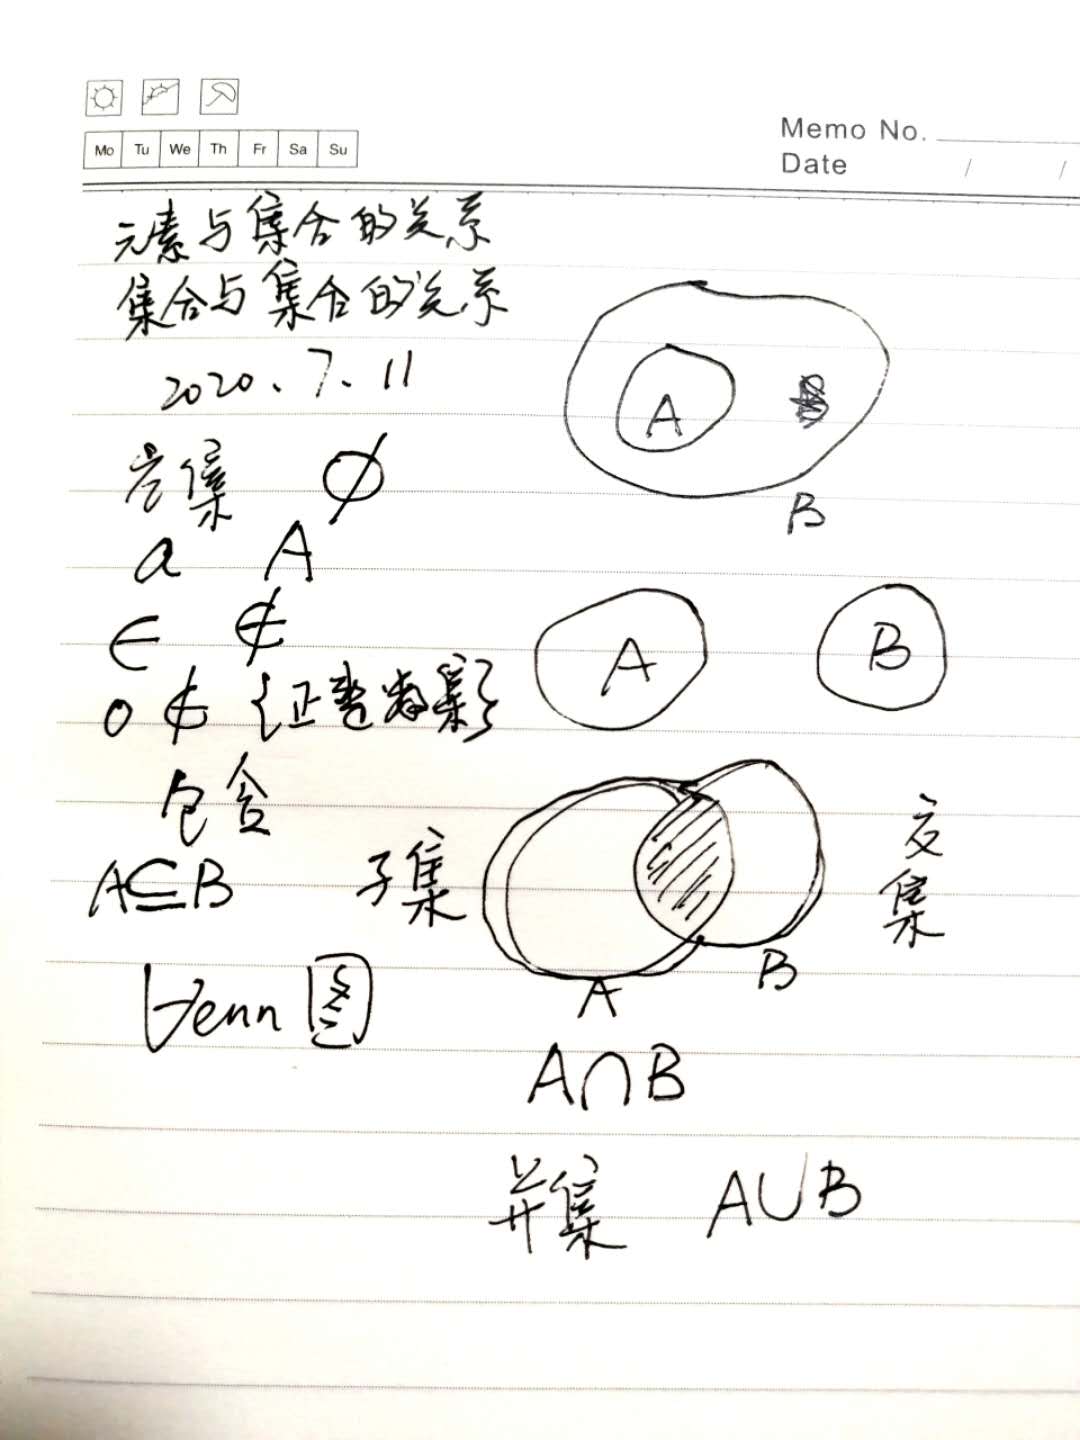 Mo Tu We Th Fr Sa Su
Memo No.
Date / /
元素与集合的关系
集合与集合的关系
2020.7.11
空集 ∅
a A
∈ ∉
0 ∉ {正整数集}
包含
A⊆B 子集
Venn图
A
B
A B
交集
A B
A∩B
并集 A∪B